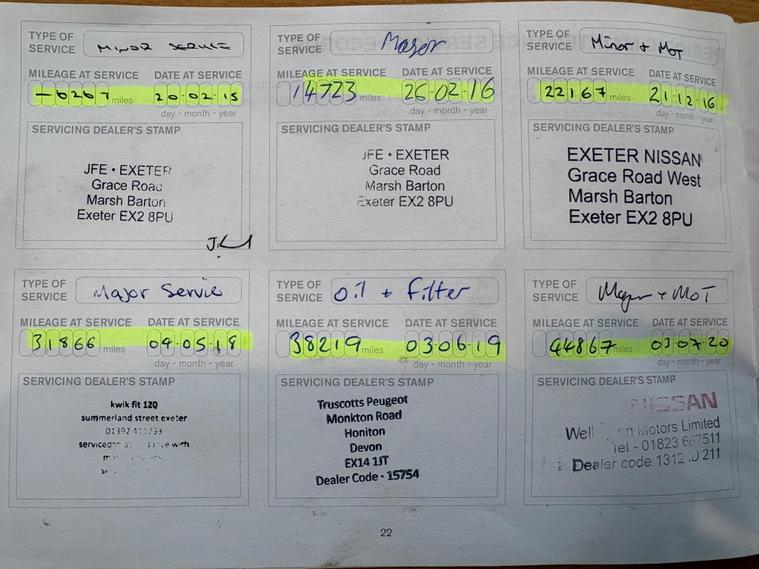 TYPE OF SERVICE MINOR SERVICE
MILEAGE AT SERVICE DATE AT SERVICE
miles 20-02-15
day - month - year
SERVICING DEALER'S STAMP
JFE • EXETER
Grace Road
Marsh Barton
Exeter EX2 8PU
TYPE OF SERVICE Major
MILEAGE AT SERVICE DATE AT SERVICE
14723 miles 26-02-16
day - month - year
SERVICING DEALER'S STAMP
JFE • EXETER
Grace Road
Marsh Barton
Exeter EX2 8PU
TYPE OF SERVICE Minor + MOT
MILEAGE AT SERVICE DATE AT SERVICE
22167 miles 21-12-16
day - month - year
SERVICING DEALER'S STAMP
EXETER NISSAN
Grace Road West
Marsh Barton
Exeter EX2 8PU
TYPE OF SERVICE Major Service
MILEAGE AT SERVICE DATE AT SERVICE
31866 miles 04-05-18
day - month - year
SERVICING DEALER'S STAMP
kwik fit 120
summerland street exeter
01392
with
TYPE OF SERVICE Oil + Filter
MILEAGE AT SERVICE DATE AT SERVICE
38219 miles 03-06-19
day - month - year
SERVICING DEALER'S STAMP
Truscotts Peugeot
Monkton Road
Honiton
Devon
EX14 1JT
Dealer Code - 15754
TYPE OF SERVICE Major + MOT
MILEAGE AT SERVICE DATE AT SERVICE
44867 miles 03-07-20
day - month - year
SERVICING DEALER'S STAMP
NISSAN
Motors Limited
Tel - 01823
Dealer code 1312 211
22